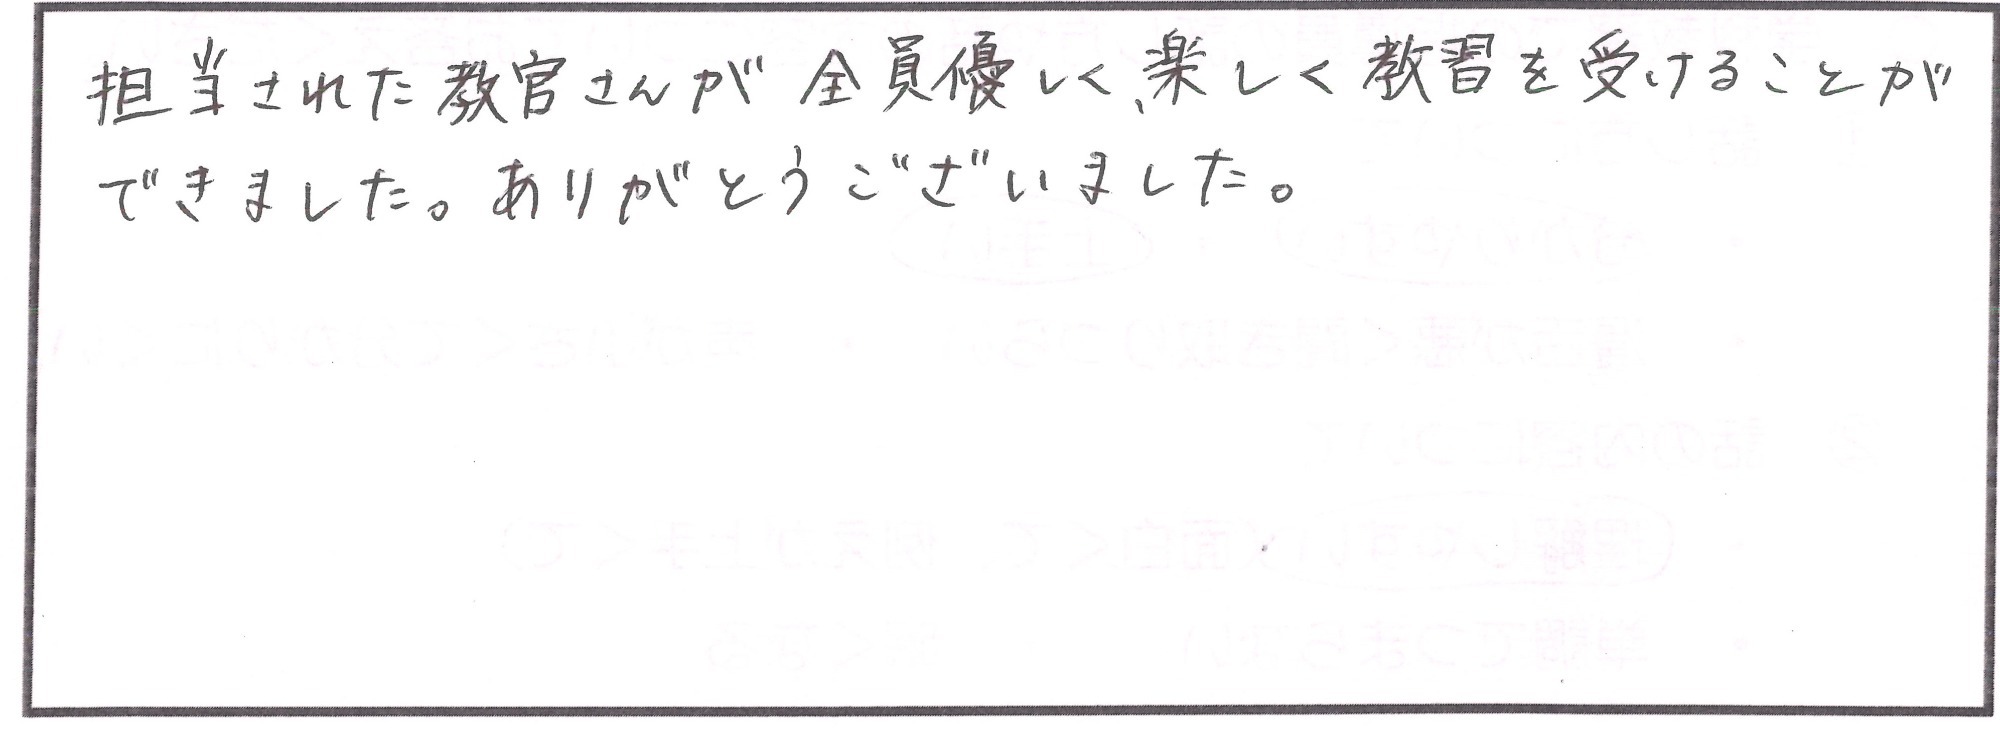 担当された教官さんが全員優しく、楽しく教習を受けることが
できました。ありがとうございました。